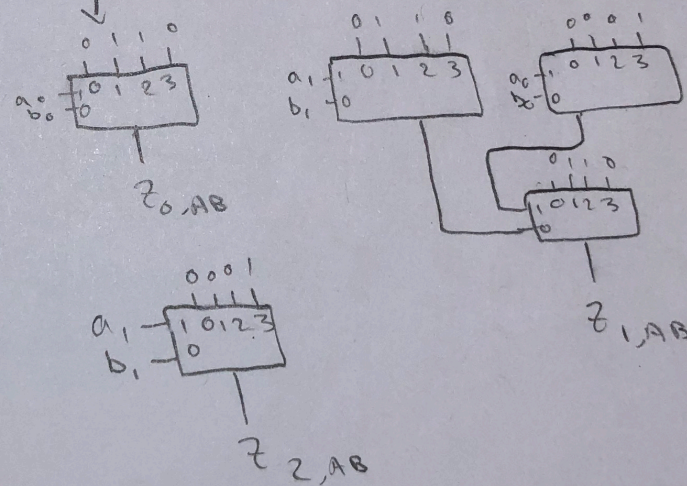 0 1 1 0
a0 1 0 1 2 3
b0 0
Z0,AB
0 1 1 0
a1 1 0 1 2 3
b1 0
0 0 0 1
a0 1 0 1 2 3
0
0 1 1 0
1 0 1 2 3
0
Z1,AB
0 0 0 1
a1 1 0 1 2 3
b1 0
Z2,AB